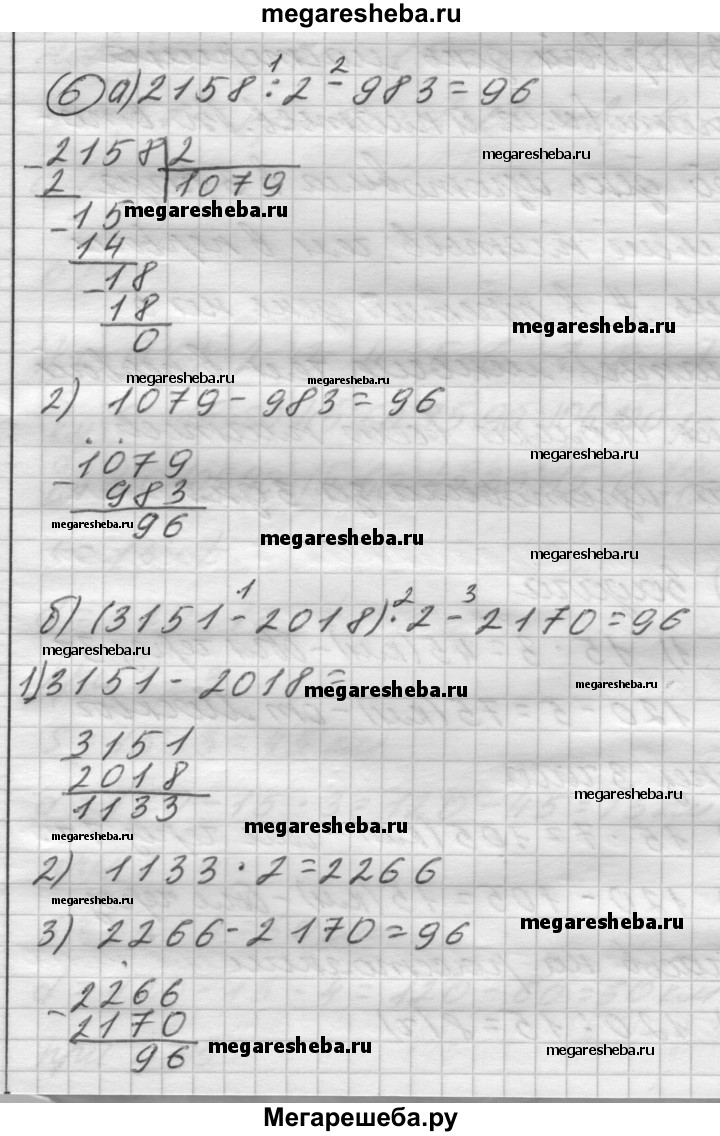 megaresheba.ru
6 а) 2158 : 2 - 983 = 96
1 2
megaresheba.ru
- 2158 | 2
2 | 1079
megaresheba.ru
- 15
14
- 18
18
megaresheba.ru
0
megaresheba.ru megaresheba.ru
2) 1079 - 983 = 96
megaresheba.ru
- 1079
983
megaresheba.ru
96
megaresheba.ru
megaresheba.ru
1 2 3
б) (3151 - 2018) · 2 - 2170 = 96
megaresheba.ru
1) 3151 - 2018 =
megaresheba.ru
megaresheba.ru
- 3151
2018
1133
megaresheba.ru
megaresheba.ru
megaresheba.ru
2) 1133 · 2 = 2266
megaresheba.ru
megaresheba.ru
3) 2266 - 2170 = 96
- 2266
2170
96
megaresheba.ru
megaresheba.ru
Мегарешеба.ру